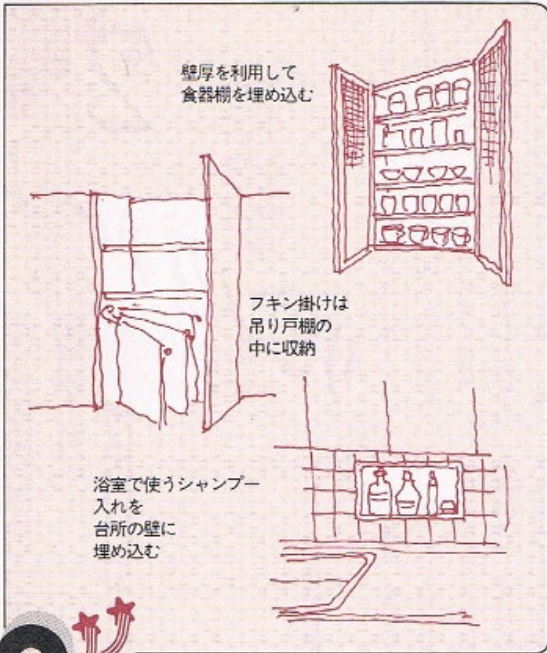 壁厚を利用して
食器棚を埋め込む
フキン掛けは
吊り戸棚の
中に収納
浴室で使うシャンプー
入れを
台所の壁に
埋め込む